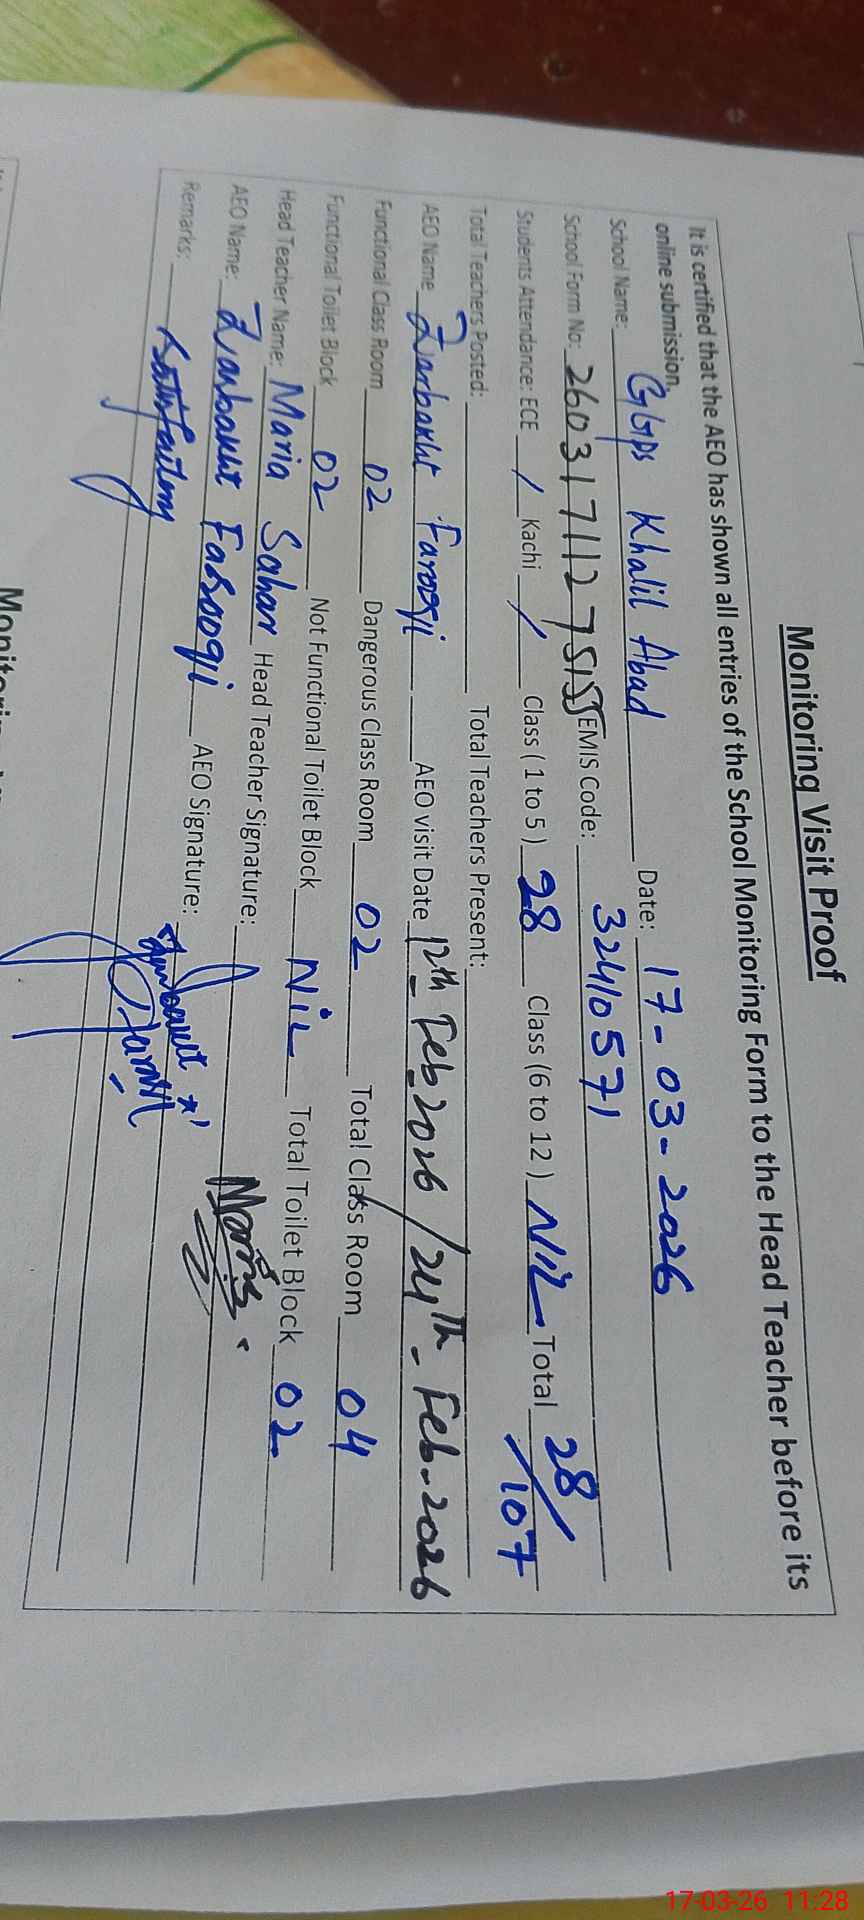 Monitoring Visit Proof
It is certified that the AEO has shown all entries of the School Monitoring Form to the Head Teacher before its
online submission.
School Name: GGPS Khalil Abad Date: 17-03-2026
School Form No: EMIS Code: 32410571
Students Attendance: ECE / Kachi / Class (1 to 5) 28 Class (6 to 12) Nil Total 28/107
Total Teachers Posted: Total Teachers Present:
AEO Name Zarbakht Farooqi AEO visit Date 12th Feb 2026 / 24th-Feb-2026
Functional Class Room 02 Dangerous Class Room 02 Total Class Room 04
Functional Toilet Block 02 Not Functional Toilet Block Nil Total Toilet Block 02
Head Teacher Name: Maria Sahar Head Teacher Signature: Maria
AEO Name: Zarbakht Farooqi AEO Signature:
Remarks: Satisfactory
17-03-26 11:28